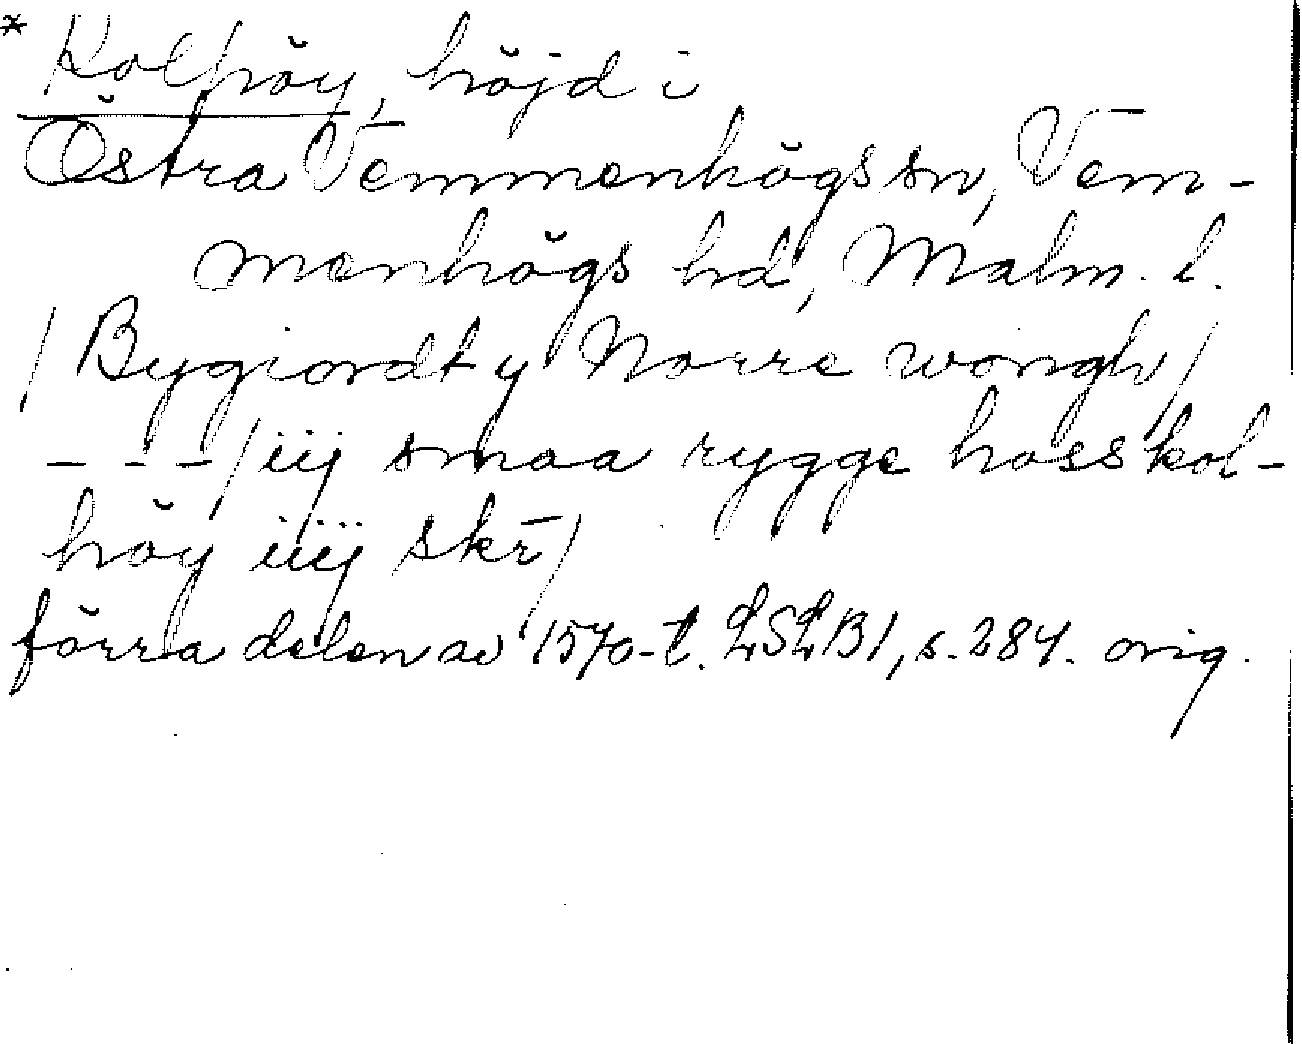 * Kolhöy, höjd i
Östra Vemmenhögs sn, Vem-
menhögs hd, Malm. l.
/ Bygiordt y Norre wongh /
- - - / iij smaa rygge hoss kol-
höy iiij skr̄ /
förra delen av 1570-t. LSLB1, s. 284. orig.